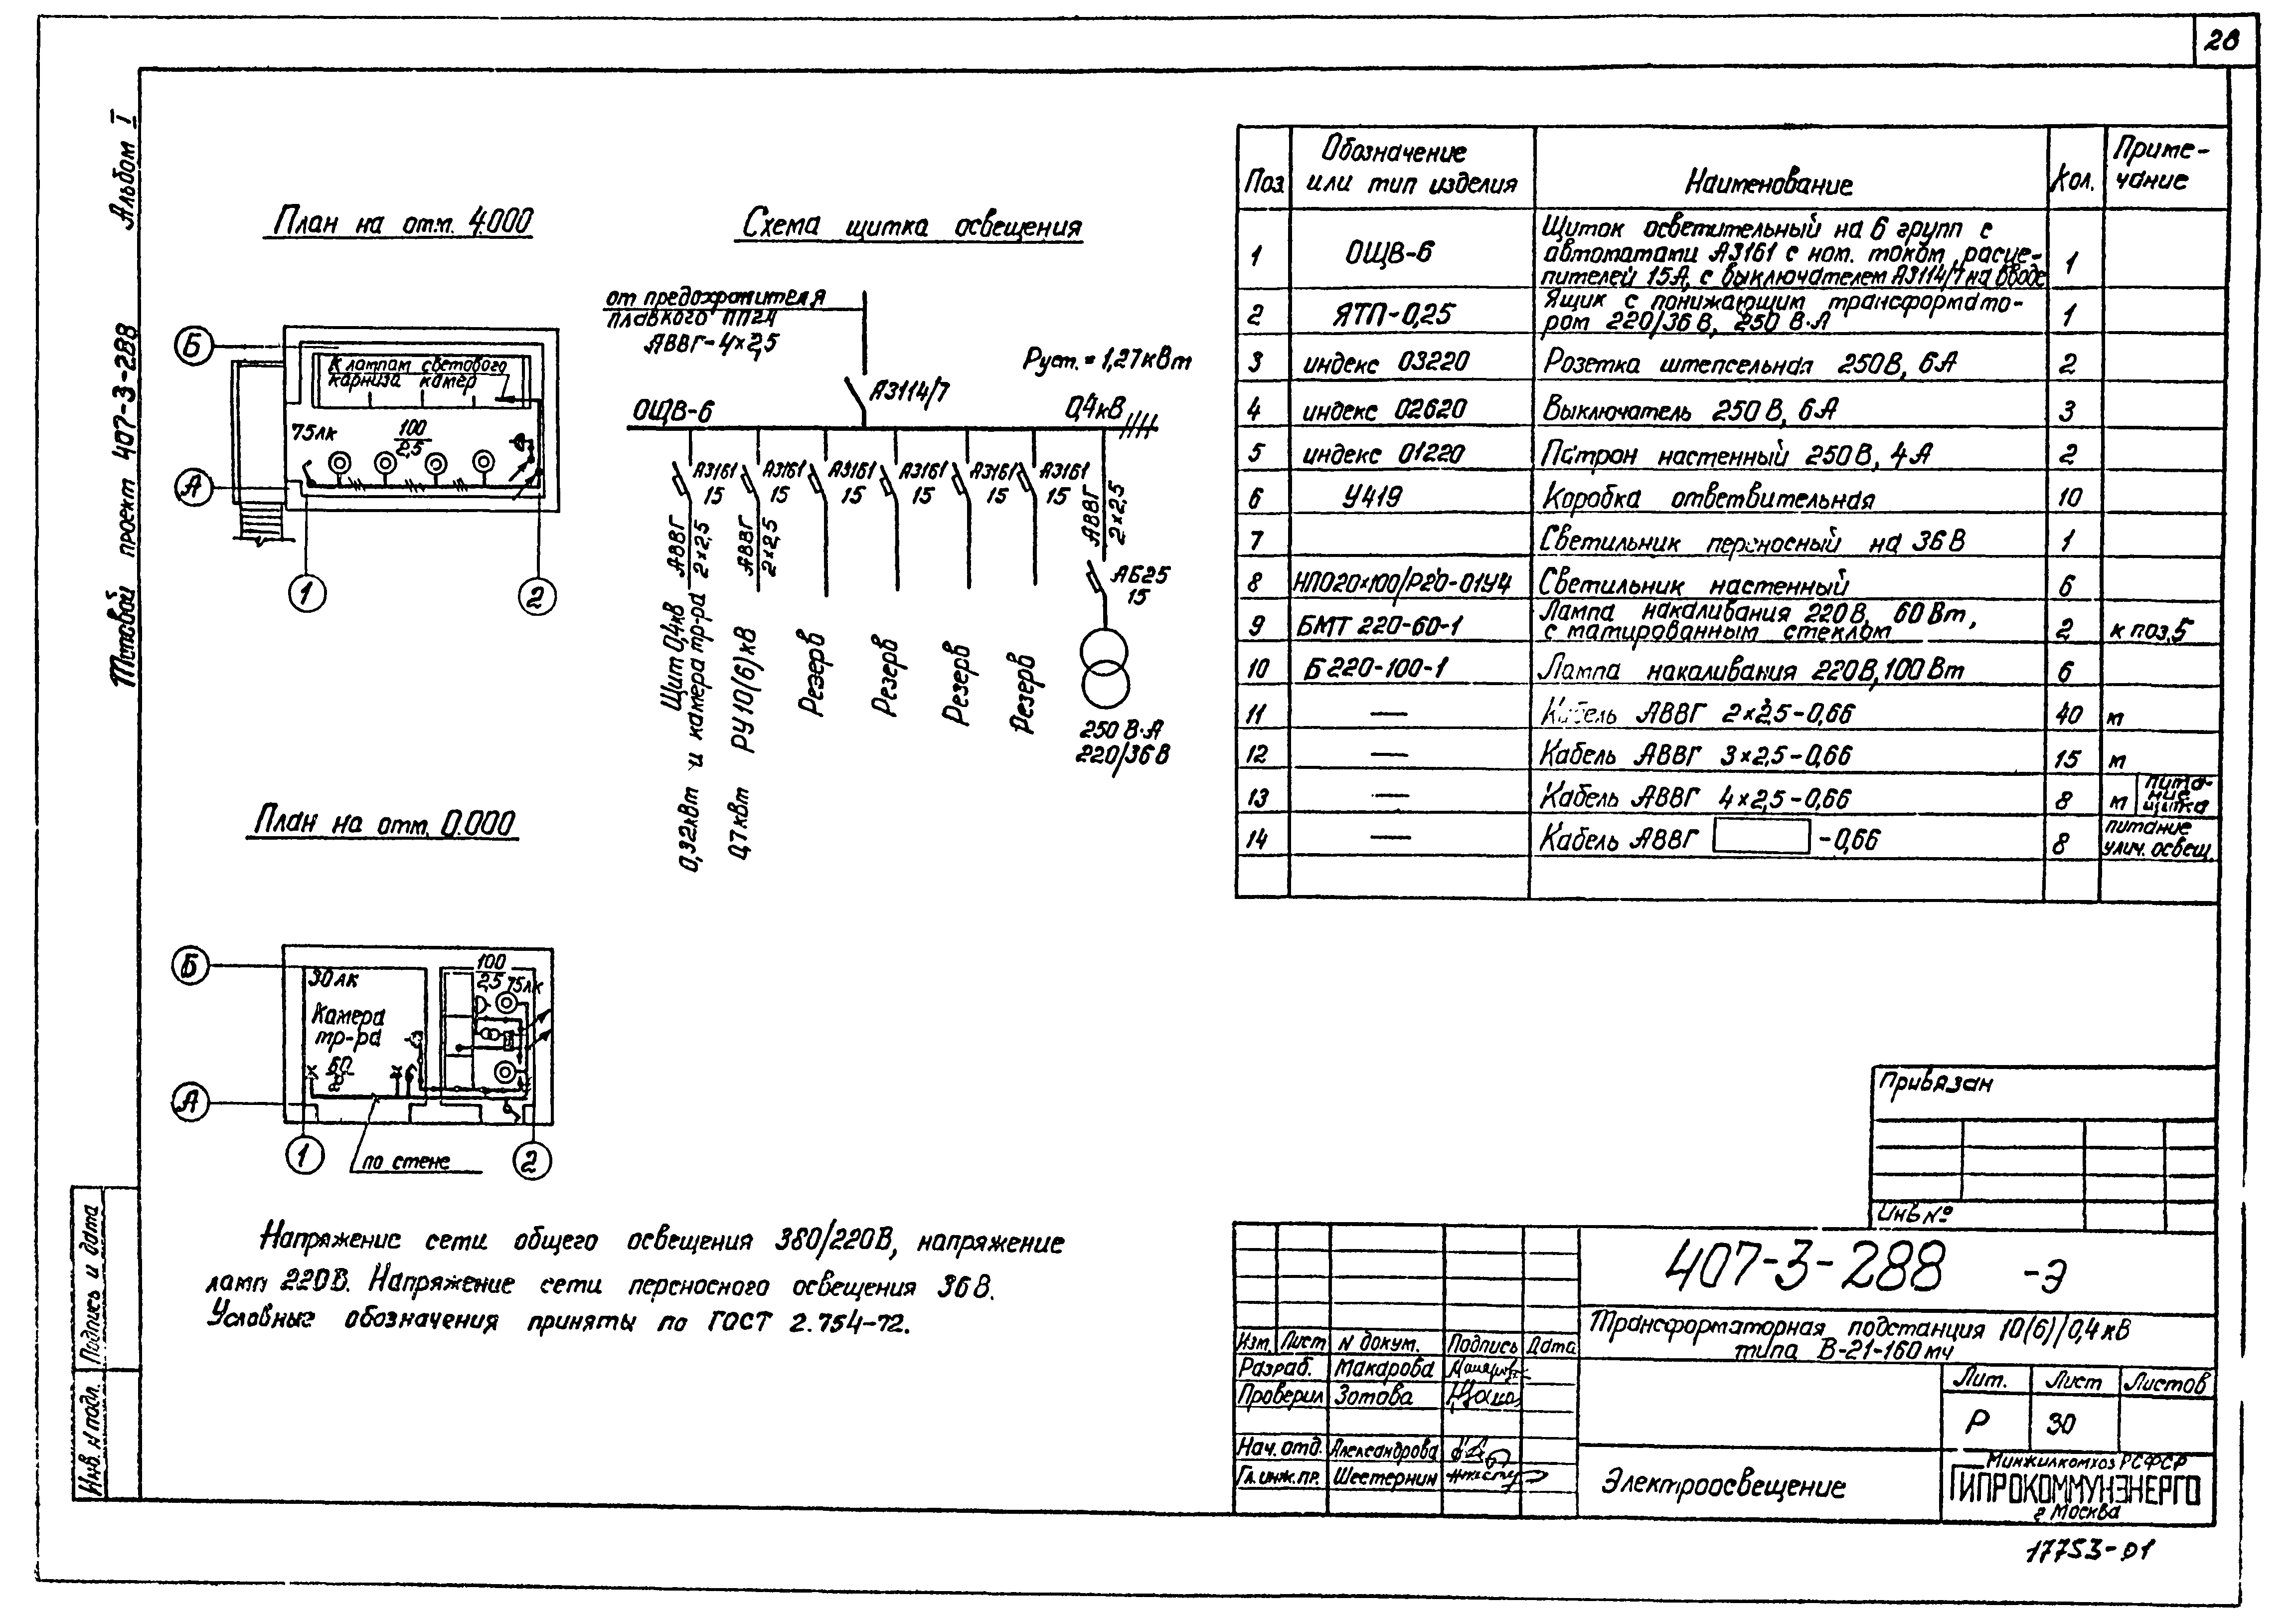 28
Альбом I
Типовой проект 407-3-288
План на отм. 4.000
Б
К лампам светового
карниза камер
75лк
100
2,5
А
1
2
Схема щитка освещения
от предохранителя
плавкого ПП24
АВВГ-4×2,5
Руст. = 1,27кВт
А3114/7
ОЩВ-6
0,4кВ
А3161
15
А3161
15
А3161
15
А3161
15
А3161
15
А3161
15
АВВГ
2×2,5
АВВГ
2×2,5
АВВГ
2×2,5
АБ25
15
0,32кВт Щит 0,4кВ
и камера тр-ра
0,7кВт РУ10(6)кВ
Резерв
Резерв
Резерв
Резерв
250 В·А
220/36 В
План на отм. 0.000
Б
30лк
Камера
тр-ра
60
2
100
2,5
75лк
А
1
2
по стене
Напряжение сети общего освещения 380/220В, напряжение
ламп 220В. Напряжение сети переносного освещения 36В.
Условные обозначения приняты по ГОСТ 2.754-72.
Поз Обозначение или тип изделия Наименование Кол. Приме-чание
1 ОЩВ-6 Щиток осветительный на 6 групп с
автоматами А3161 с ном. током расце-
пителей 15А, с выключателем А3114/7 на вводе 1
2 ЯТП-0,25 Ящик с понижающим трансформато-
ром 220/36В, 250 В·А 1
3 индекс 03220 Розетка штепсельная 250В, 6А 2
4 индекс 02620 Выключатель 250В, 6А 3
5 индекс 01220 Патрон настенный 250В, 4А 2
6 У419 Коробка ответвительная 10
7 Светильник переносный на 36В 1
8 НПО20×100/Р20-01У4 Светильник настенный 6
9 БМТ 220-60-1 Лампа накаливания 220В, 60Вт,
с матированным стеклом 2 к поз.5
10 Б220-100-1 Лампа накаливания 220В, 100Вт 6
11 — Кабель АВВГ 2×2,5-0,66 40 м
12 — Кабель АВВГ 3×2,5-0,66 15 м
13 — Кабель АВВГ 4×2,5-0,66 8 м пита-
ние
щитка
14 — Кабель АВВГ -0,66 8 питание
улич. освещ.
Привязан
Инв №
407-3-288 -Э
Трансформаторная подстанция 10(6)/0,4кВ
типа В-21-160мч
Изм. Лист N докум. Подпись Дата
Разраб. Макарова
Проверил Зотова
Нач. отд. Александрова
Гл. инж. пр. Шестернин
Лит. Лист Листов
Р 30
Электроосвещение
Минжилкомхоз РСФСР
ГИПРОКОММУНЭНЕРГО
г Москва
Подпись и дата
Инв. N подл.
17753-01